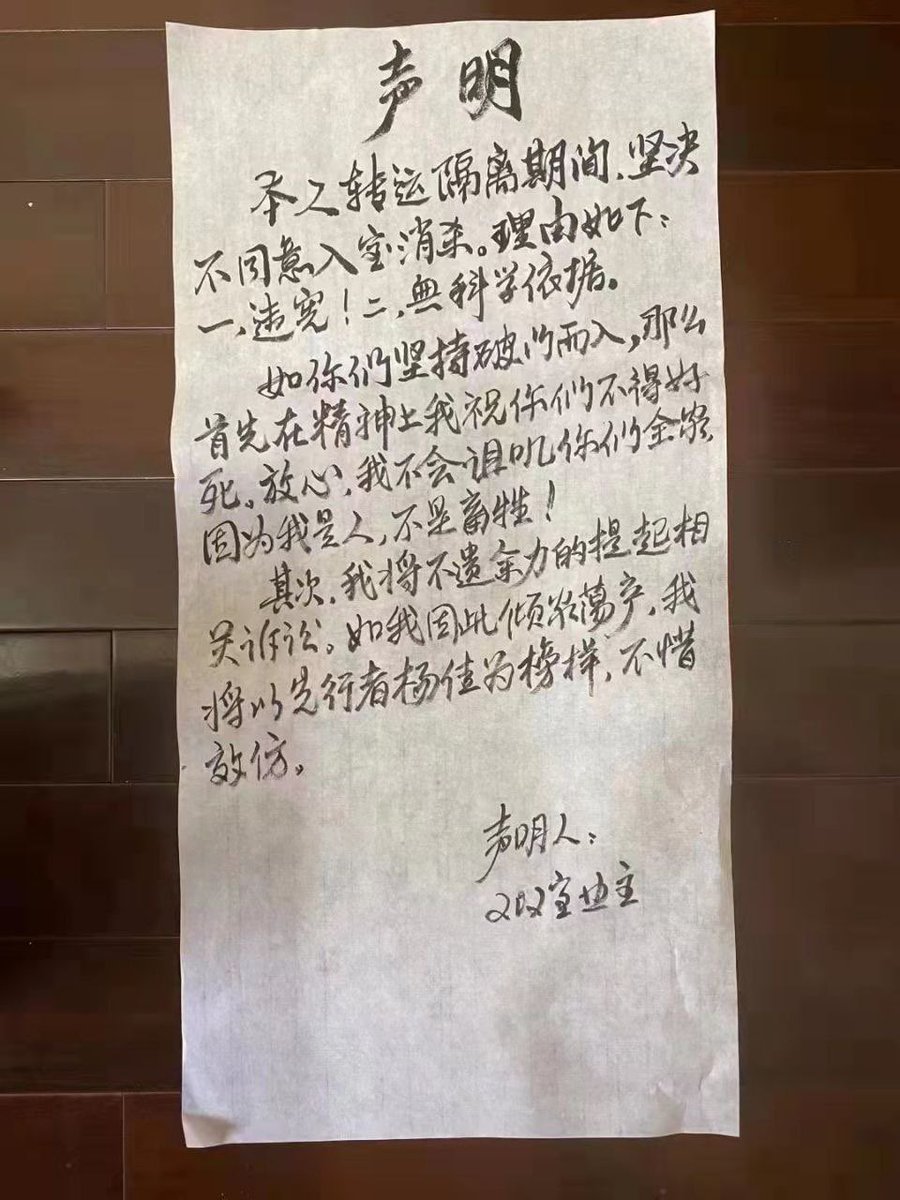 声明
本人转运隔离期间，坚决
不同意入室消杀。理由如下：
一，违宪！二，無科学依据。
如你们坚持破门而入，那么
首先在精神上我祝你们不得好
死。放心，我不会诅咒你们全家，
因为我是人，不是畜牲！
其次，我将不遗余力的提起相
关诉讼。如我因此倾家荡产，我
将以先行者杨佳为榜样，不惜
效仿。
声明人：
202室业主